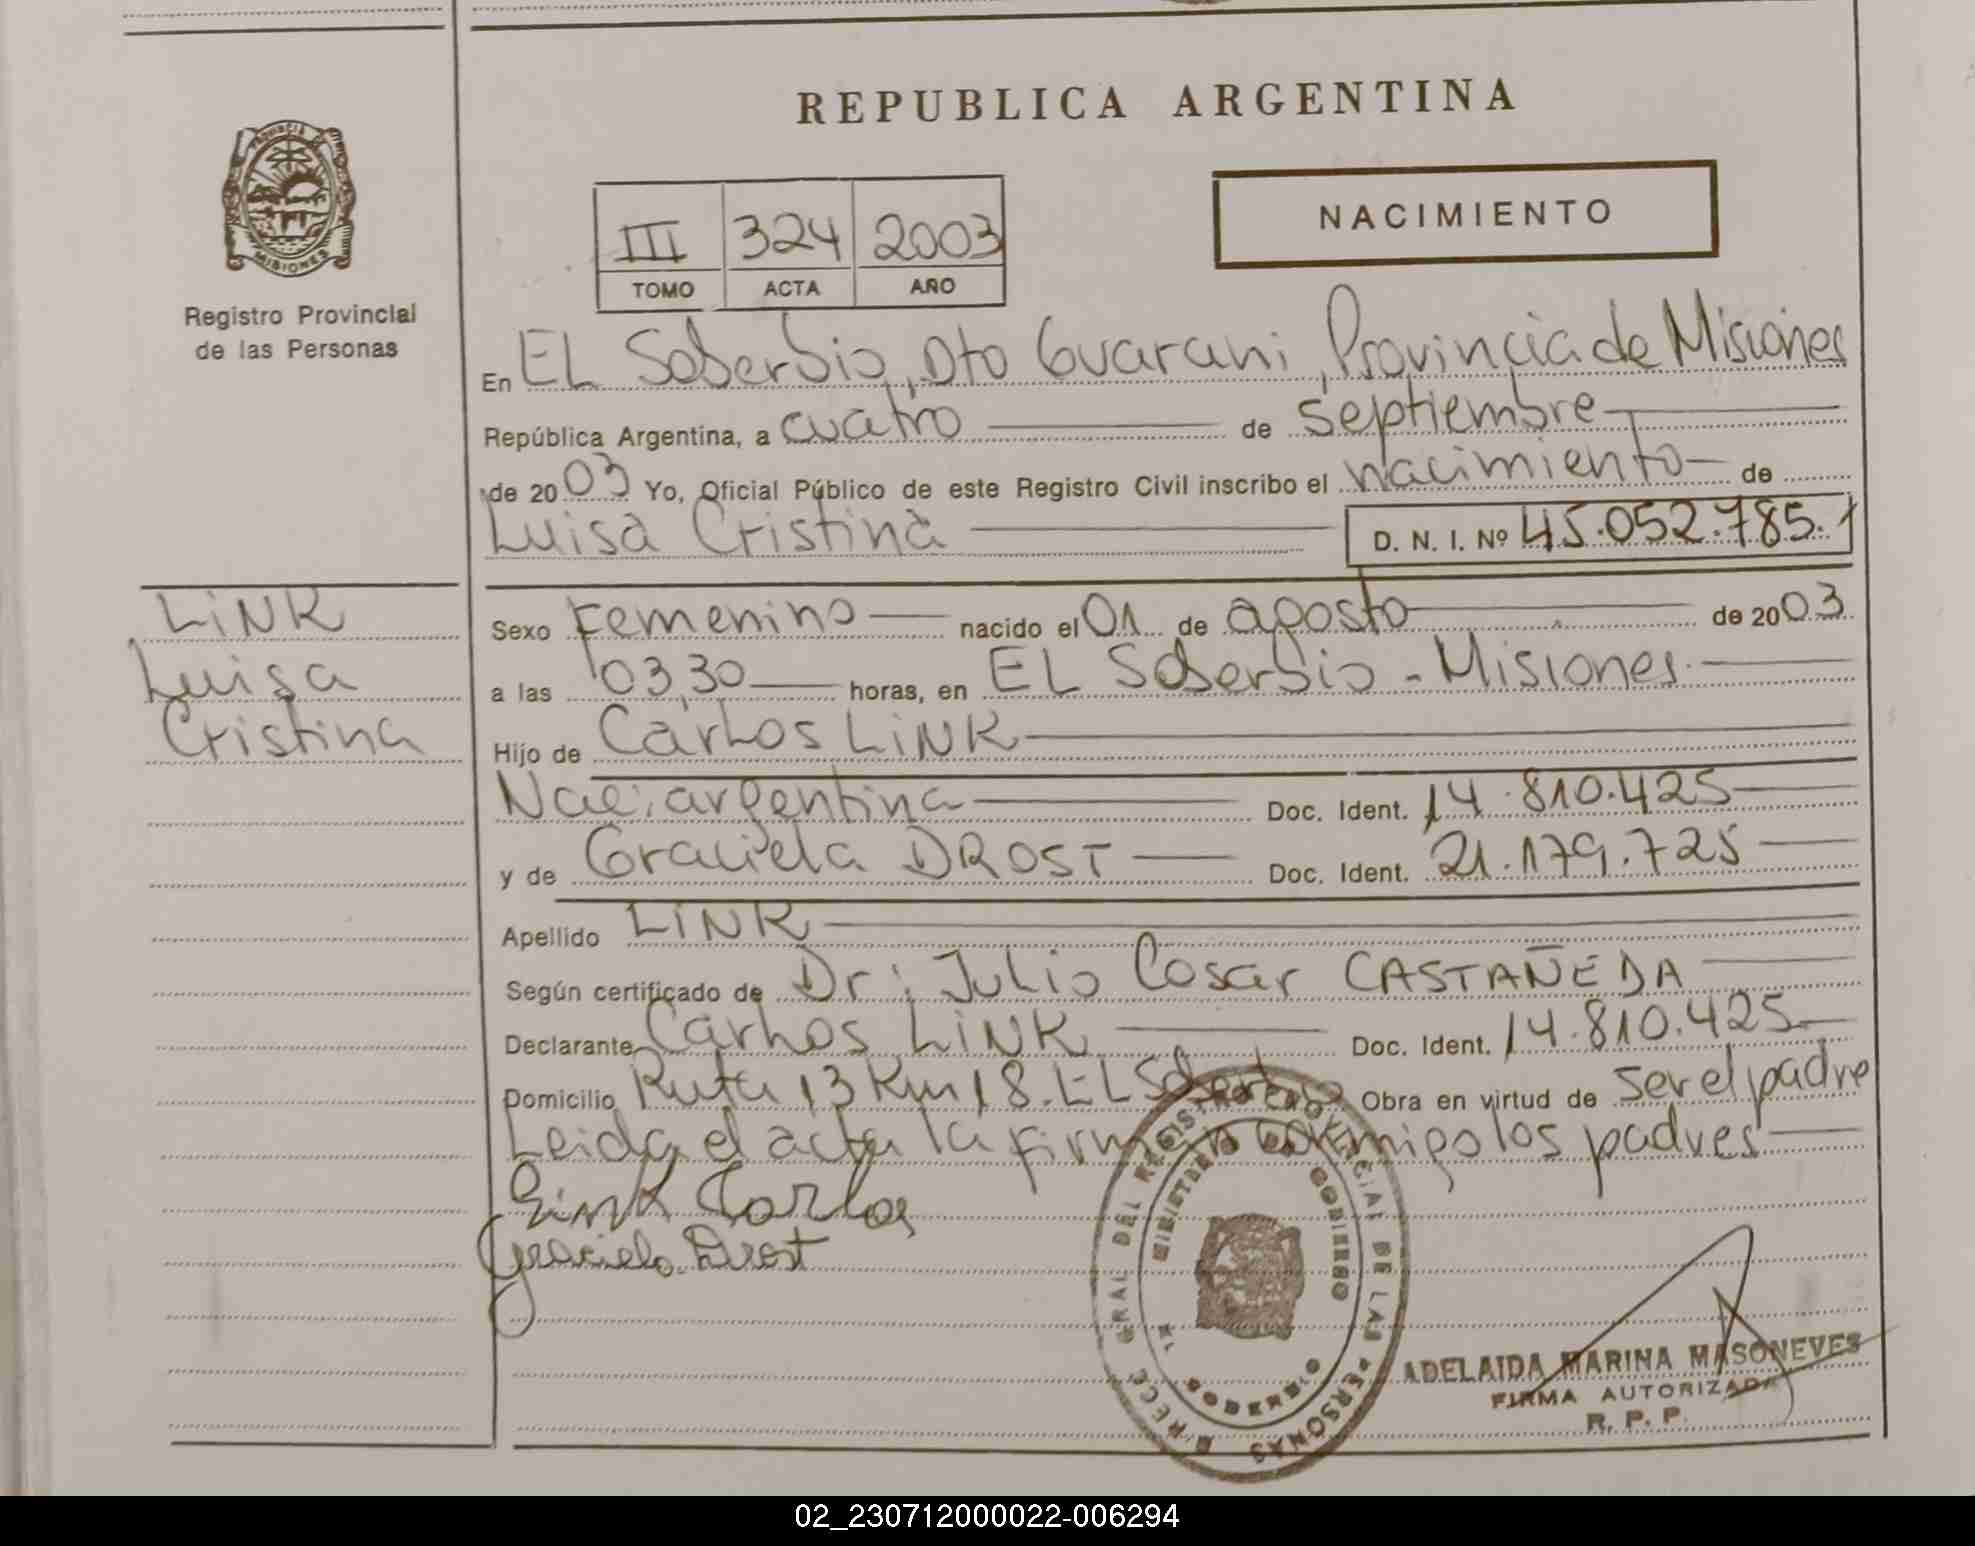 REPUBLICA ARGENTINA
PROVINCIA DE MISIONES
Registro Provincial
de las Personas
III 324 2003
TOMO ACTA AÑO
NACIMIENTO
En EL Soberbio, Dto Guarani, Provincia de Misiones
República Argentina, a cuatro de septiembre
de 2003 Yo, Oficial Público de este Registro Civil inscribo el nacimiento de
Luisa Cristina D. N. I. Nº 45.052.785.
LINK
Luisa
Cristina
Sexo Femenino nacido el 01 de agosto de 2003
a las 03,30 horas, en EL Soberbio - Misiones
Hijo de Carlos LINK
Nac: argentina Doc. Ident. 14.810.425
y de Graciela DROST Doc. Ident. 21.179.725
Apellido LINK
Según certificado de Dr: Julio Cosar CASTAÑEDA
Declarante Carlos LINK Doc. Ident. 14.810.425
Domicilio Ruta 13 Km 18. EL Soberbio Obra en virtud de ser el padre
Leida el acta la firman conmigo los padres
Link Carlos
Graciela Drost
GRAL DEL REGISTRO PROVINCIAL DE LAS PERSONAS
MINISTERIO DE GOBIERNO
EL SOBERBIO
ADELAIDA MARINA MASONEVES
FIRMA AUTORIZADA
R. P. P.
02_230712000022-006294